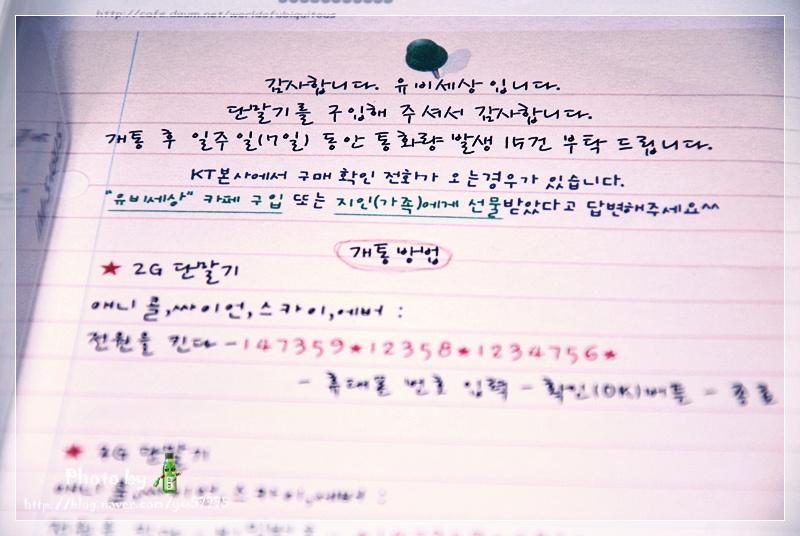 http://cafe.daum.net/worldofubiquitous
감사합니다. 유비세상 입니다.
단말기를 구입해 주셔서 감사합니다.
개통 후 일주일(7일) 동안 통화량 발생 15건 부탁 드립니다.
KT본사에서 구매 확인 전화가 오는경우가 있습니다.
"유비세상" 카페 구입 또는 지인(가족)에게 선물받았다고 답변해주세요^^
개통방법
★ 2G 단말기
애니콜,싸이언,스카이,에버 :
전원을 킨다 -147359★12358★1234756★
- 휴대폰 번호 입력 - 확인(OK)버튼 - 종료
★ 단말기
Photo by